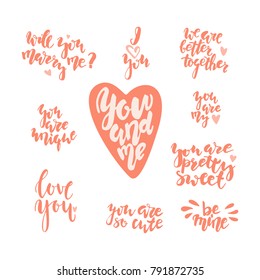 will you
marry me?
I
you
we are
better
together
you
are
unique
you
and
me
you
are
my
you are
pretty
sweet
love
you
you are
so cute
be
mine
shutterstock.com · 791872735